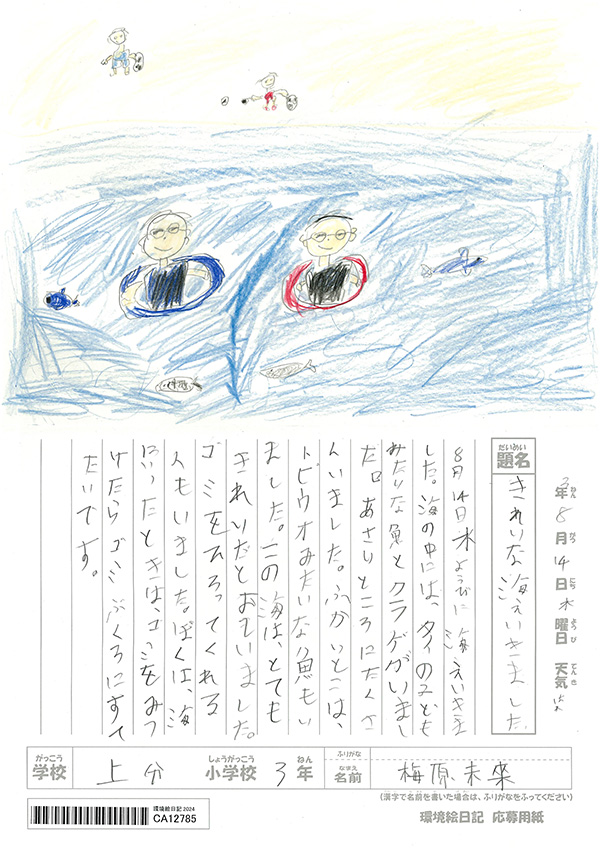 3年8月14日水曜日 天気 はれ
ねん がつ にち ようび てんき
だいめい
題名
きれいな海えいきました
8月14日水ようびに海えいきま
した。海の中には、タイの子ども
みたいな魚とクラゲがいまし
た。あさいところにたくさ
んいました。ふかいとこは、
トビウオみたいな魚もい
ました。この海は、とても
きれいだとおもいました。
ゴミをひろってくれる
人もいました。ぼくは、海
にいったときは、ゴミをみつ
けたらゴミぶくろにすて
たいです。
がっこう しょうがっこう ねん ふりがな
学校 上分 小学校 3年 なまえ 名前 梅原未來
(漢字で名前を書いた場合は、ふりがなをふってください)
環境絵日記 2024
CA12785
環境絵日記 応募用紙